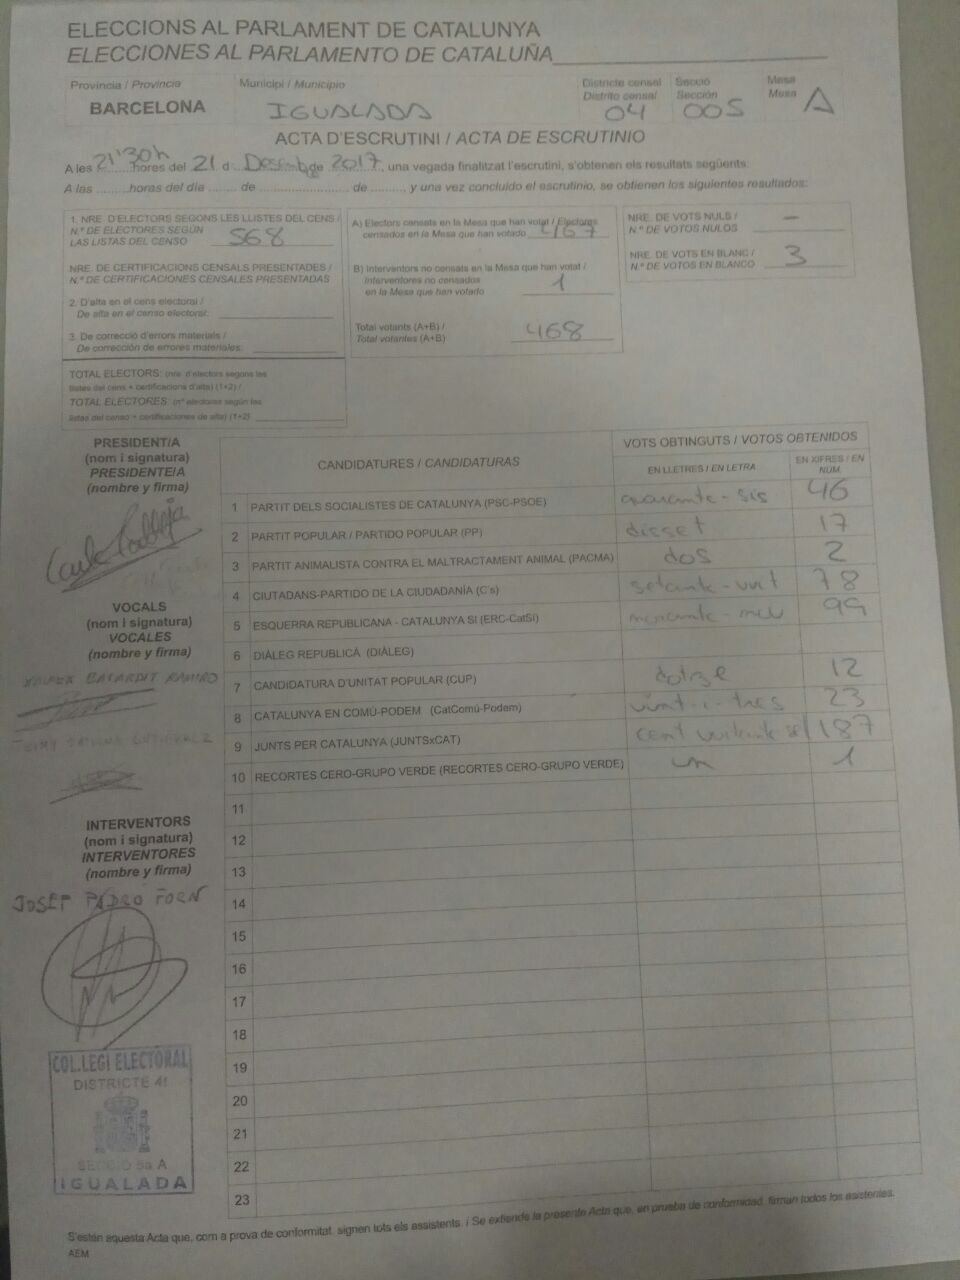 ELECCIONS AL PARLAMENT DE CATALUNYA
ELECCIONES AL PARLAMENTO DE CATALUÑA
Província / Provincia
BARCELONA
Municipi / Municipio
IGUALADA
Districte censal
Distrito censal
04
Secció
Sección
005
Mesa
Mesa A
ACTA D'ESCRUTINI / ACTA DE ESCRUTINIO
A les 21'30h hores del 21 d Desemb de 2017, una vegada finalitzat l'escrutini, s'obtenen els resultats següents:
A las ........horas del día ....... de ..................... de ........, y una vez concluido el escrutinio, se obtienen los siguientes resultados:
1. NRE. D'ELECTORS SEGONS LES LLISTES DEL CENS /
N.º DE ELECTORES SEGÚN
LAS LISTAS DEL CENSO 568
NRE. DE CERTIFICACIONS CENSALS PRESENTADES /
N.º DE CERTIFICACIONES CENSALES PRESENTADAS
2. D'alta en el cens electoral /
De alta en el censo electoral:
3. De correcció d'errors materials /
De corrección de errores materiales:
TOTAL ELECTORS: (nre. d'electors segons les
llistes del cens + certificacions d'alta) (1+2) /
TOTAL ELECTORES: (nº electores según las
listas del censo + certificaciones de alta) (1+2)
A) Electors censats en la Mesa que han votat / Electores
censados en la Mesa que han votado 467
B) Interventors no censats en la Mesa que han votat /
Interventores no censados
en la Mesa que han votado 1
Total votants (A+B) /
Total votantes (A+B) 468
NRE. DE VOTS NULS /
N.º DE VOTOS NULOS –
NRE. DE VOTS EN BLANC /
N.º DE VOTOS EN BLANCO 3
PRESIDENT/A
(nom i signatura)
PRESIDENTE/A
(nombre y firma)
VOCALS
(nom i signatura)
VOCALES
(nombre y firma)
BATARDIT RAMIRO
INTERVENTORS
(nom i signatura)
INTERVENTORES
(nombre y firma)
JOSEP
COL.LEGI ELECTORAL
DISTRICTE 4t
SECCIO 5a A
IGUALADA
CANDIDATURES / CANDIDATURAS
VOTS OBTINGUTS / VOTOS OBTENIDOS
EN LLETRES / EN LETRA
EN XIFRES / EN NÚM.
1 PARTIT DELS SOCIALISTES DE CATALUNYA (PSC-PSOE) quaranta-sis 46
2 PARTIT POPULAR / PARTIDO POPULAR (PP) disset 17
3 PARTIT ANIMALISTA CONTRA EL MALTRACTAMENT ANIMAL (PACMA) dos 2
4 CIUTADANS-PARTIDO DE LA CIUDADANÍA (C's) setanta-vuit 78
5 ESQUERRA REPUBLICANA - CATALUNYA SÍ (ERC-CatSí) 99
6 DIÀLEG REPUBLICÀ (DIÀLEG)
7 CANDIDATURA D'UNITAT POPULAR (CUP) dotze 12
8 CATALUNYA EN COMÚ-PODEM (CatComú-Podem) vint-i-tres 23
9 JUNTS PER CATALUNYA (JUNTSxCAT) cent vuitanta set 187
10 RECORTES CERO-GRUPO VERDE (RECORTES CERO-GRUPO VERDE) un 1
11
12
13
14
15
16
17
18
19
20
21
22
23
S'estén aquesta Acta que, com a prova de conformitat, signen tots els assistents. / Se extiende la presente Acta que, en prueba de conformidad, firman todos los asistentes.
AEM